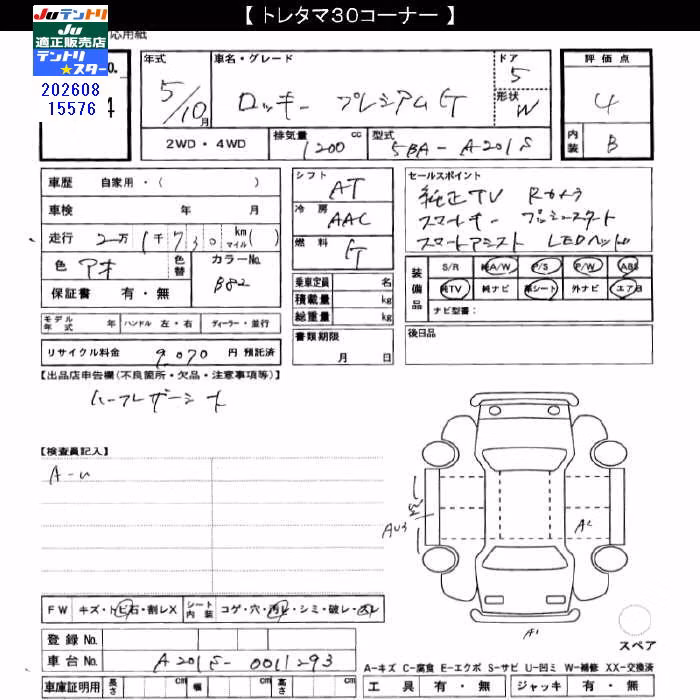 【 トレタマ30コーナー 】
Ju テントリ 応用紙
Ju
適正販売店
テントリ
★スター
No.
202608
15576
年式 車名・グレード ドア 評価点
5/10月 ロッキー プレミアムG 5 4
形状 W
2WD・4WD 排気量 1200 cc 型式 5BA-A201S 内装 B
車歴 自家用・( )
車検 年 月
走行 2万1千730 km マイル( )
色 アオ 色替 カラーNo. B82
保証書 有・無
シフト AT
冷房 AAC
燃料 G
乗車定員 名
積載量 kg
総重量 kg
書類期限
月 日
セールスポイント
純正TV Rカメラ
スマートキー プッシュスタート
スマートアシスト LEDヘッド
装備品
S/R 純A/W P/S P/W ABS
純TV 純ナビ 革シート 外ナビ エアB
ナビ型番:
後日品
モデル年式 年 ハンドル 左・右 ディーラー・並行
リサイクル料金 9,070 円 預託済
【出品店申告欄(不良箇所・欠品・注意事項等)】
ハーフレザーシート
【検査員記入】
A-U
AU3
A2
A1
FW キズ・トビ石・割レX シート内装 コゲ・穴・汚レ・シミ・破レ・凹レ
スペア
登録No.
車台No. A201S-0011293
車庫証明用 長さ cm 幅 cm 高さ cm
A-キズ C-腐食 E-エクボ S-サビ U-凹ミ W-補修 XX-交換済
工具 有・無 ジャッキ 有・無